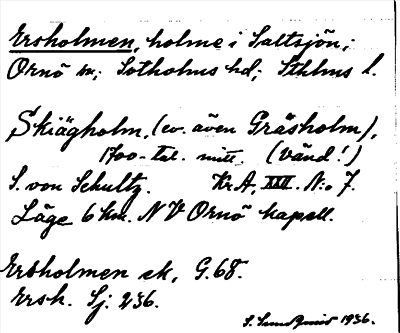 Ersholmen, holme i Saltsjön;
Ornö sn; Sotholms hd; Sthlms l.
Skiägholm, (ev. även Gräsholm),
1700-tal. mitt. (vänd!)
S. von Schultz. Kr.A. XXX. N:o 7.
Läge 6 km. NV Ornö kapell.
Ersholmen ek, G.68.
Ersh. Sj. 236.
1936.